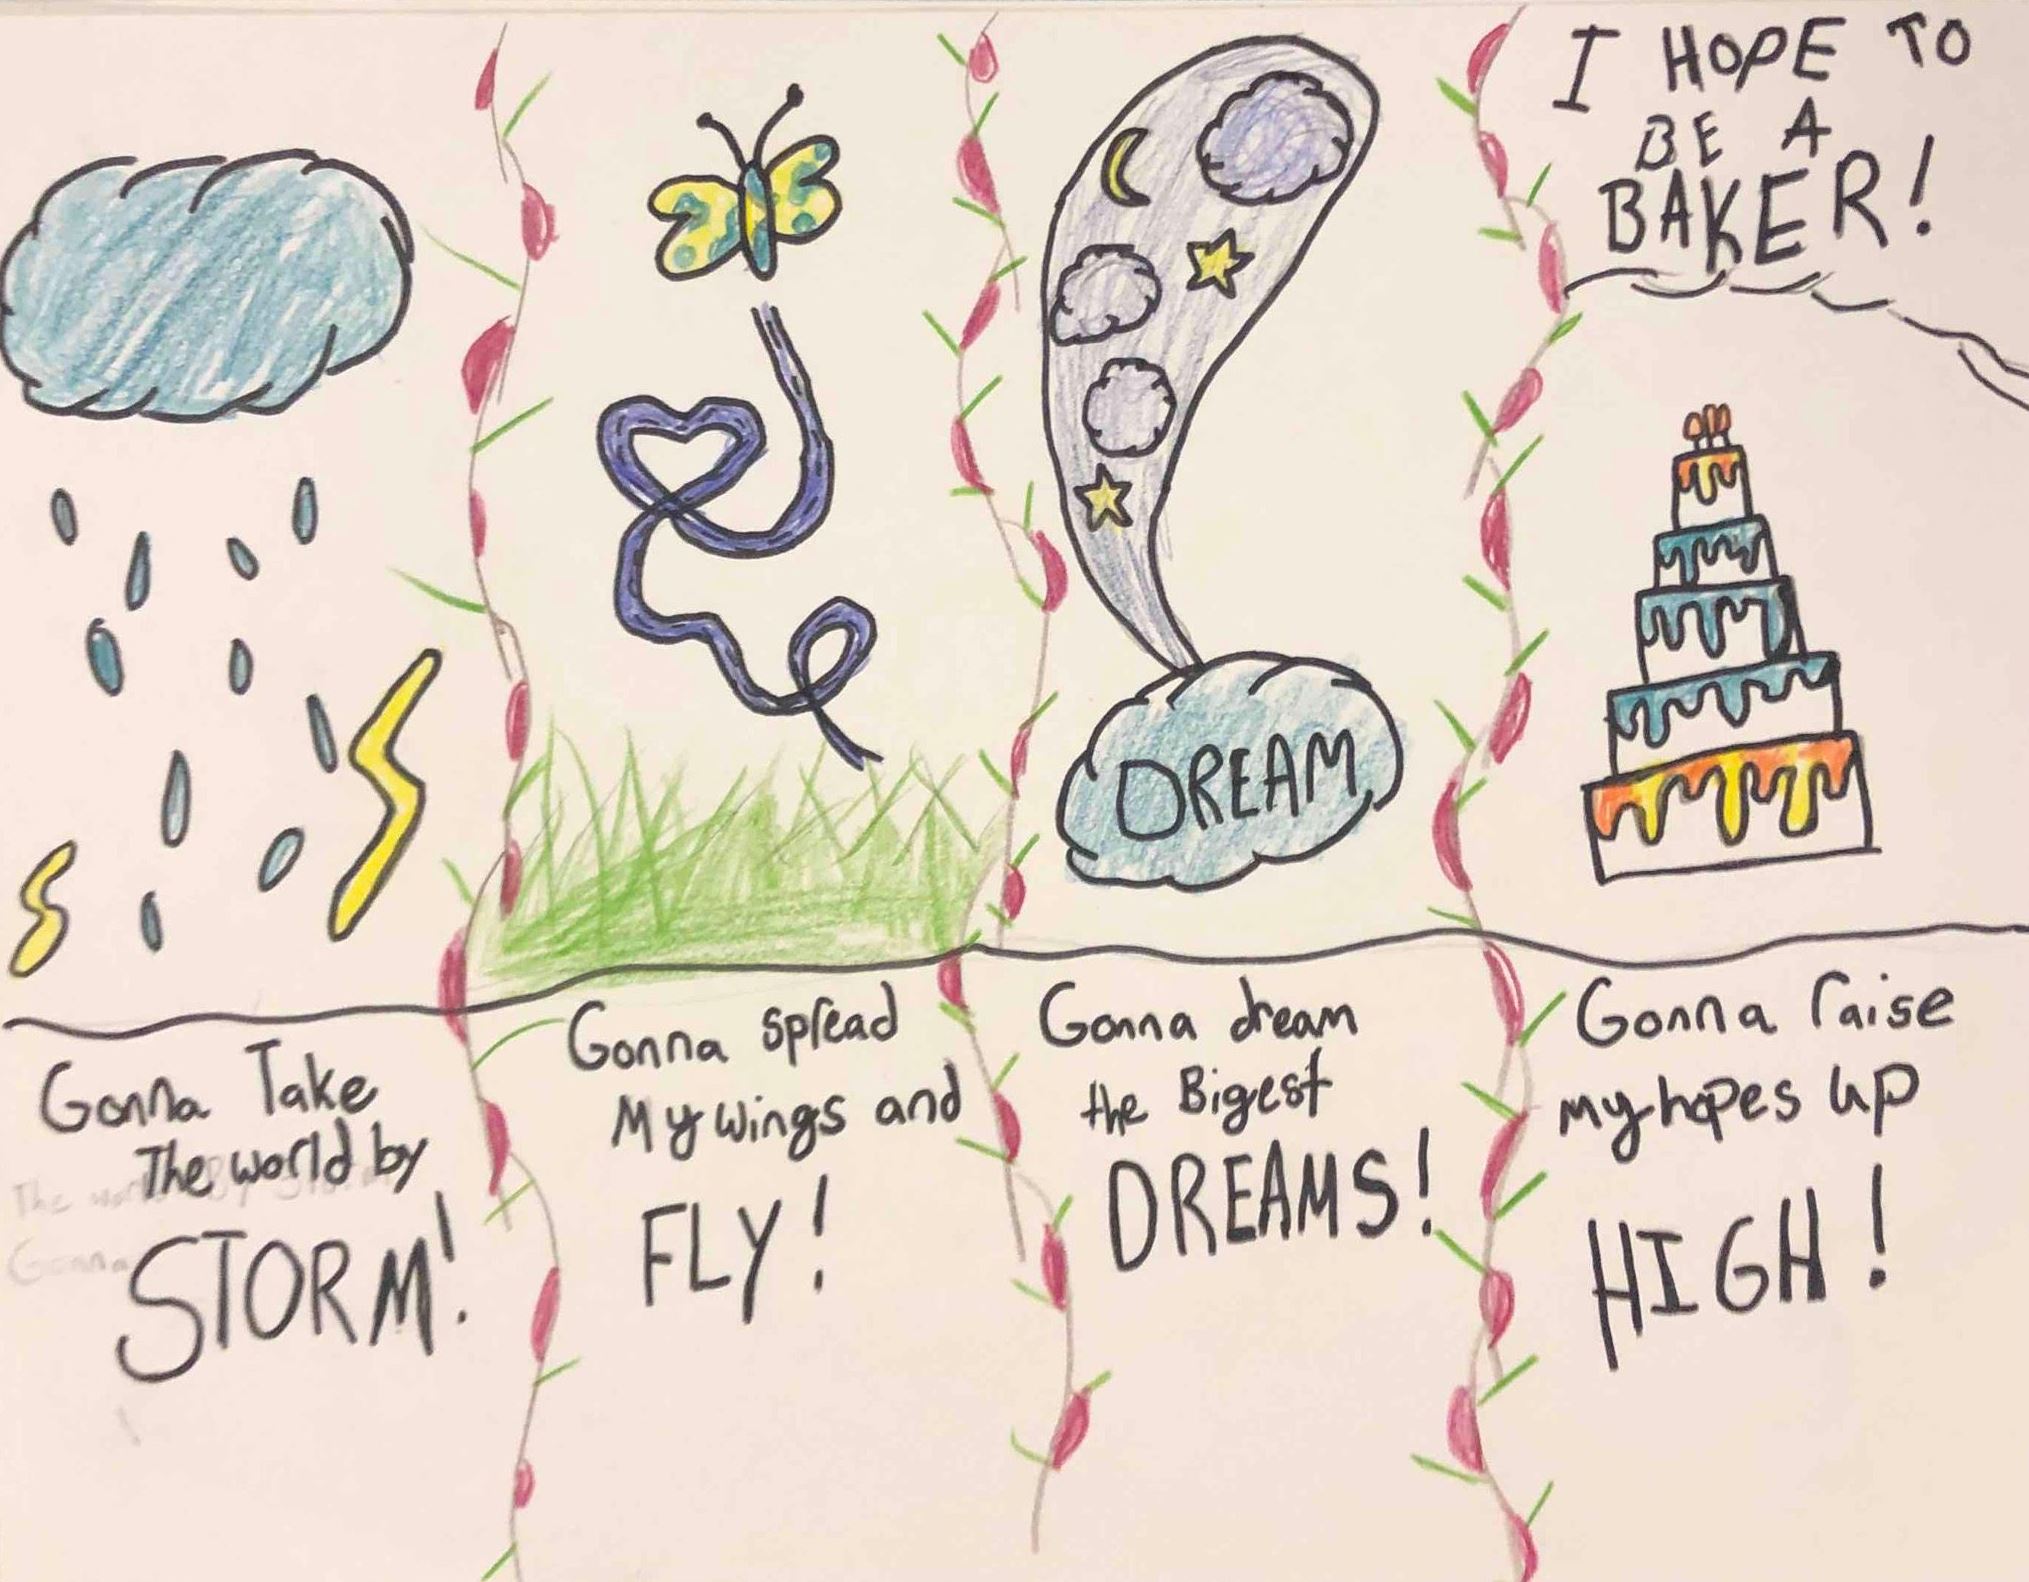 I HOPE TO
BE A
BAKER!
DREAM
Gonna Take
The world by
The world By Storm
Gonna
STORM!
Gonna spread
My wings and
FLY!
Gonna dream
the Bigest
DREAMS!
Gonna raise
my hopes up
HIGH!